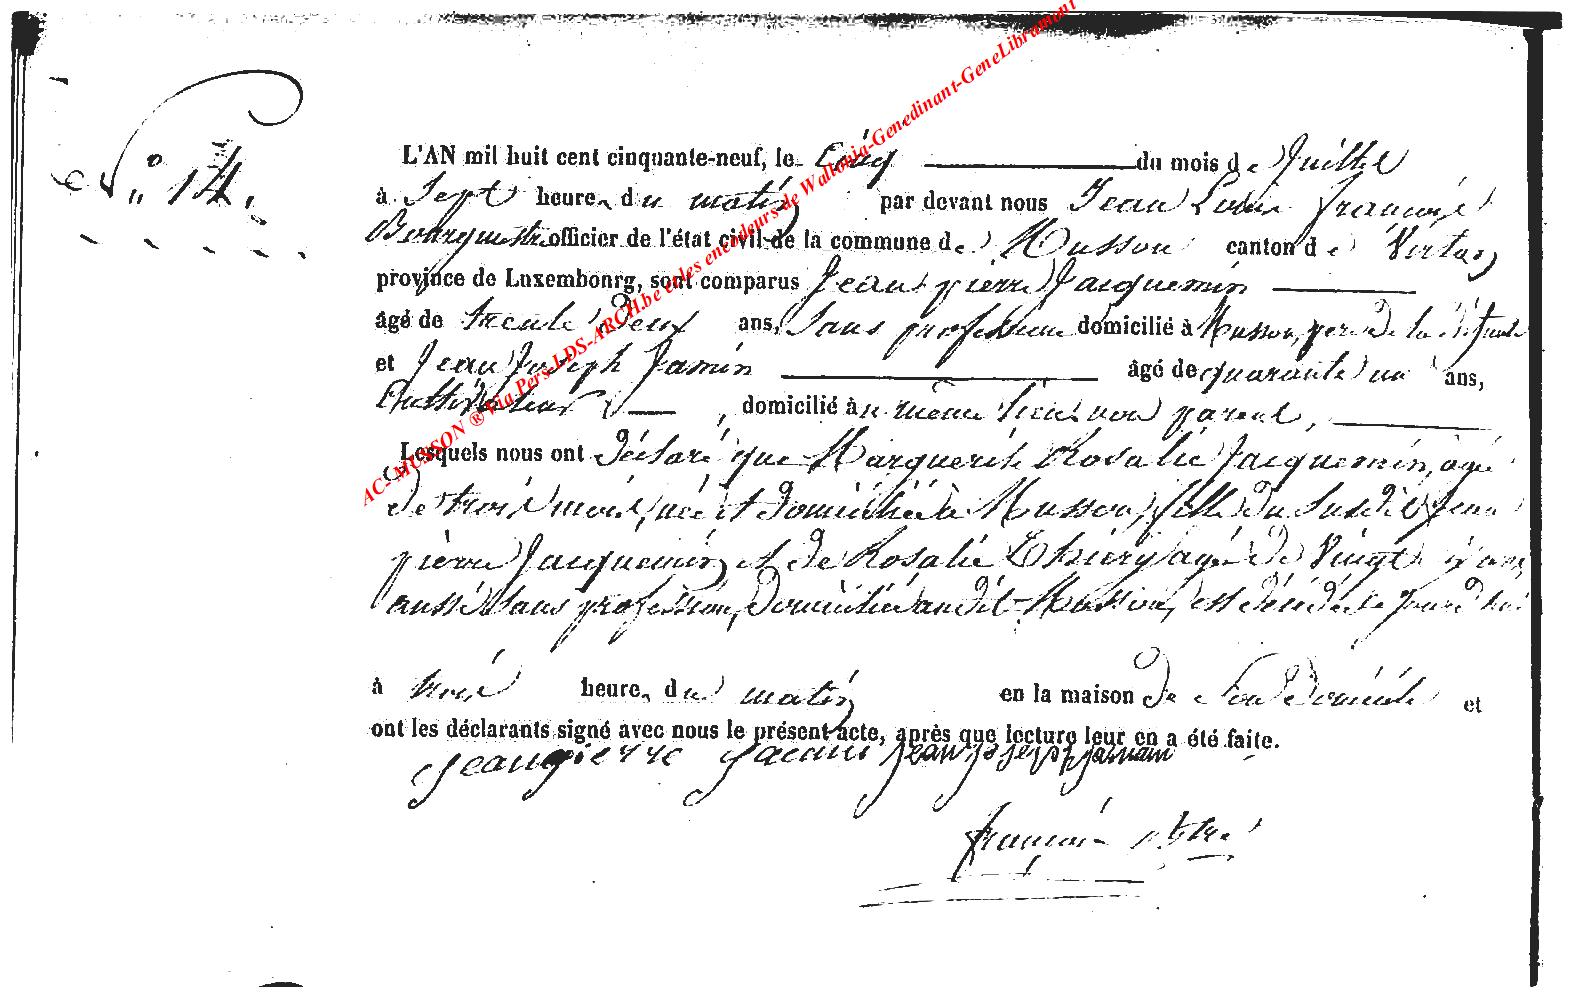 N° 14.
L'AN mil huit cent cinquante-neuf, le cinq du mois de Juillet
à Sept heures du matin par devant nous Jean Louis François
Bourguemestre officier de l'état civil de la commune de Musson canton de Virton
province de Luxembourg, sont comparus Jean pierre Jacquemin
âgé de trente deux ans, Sans profession domicilié à Musson, père de la défunte
et Jean Joseph Jamin âgé de quarante un ans,
Cultivateur, domicilié au même lieu non parent,
Lesquels nous ont Déclaré que Marguerite Rosalie Jacquemin, agée
de trois mois, née et domiciliée à Musson, fille du Susdit Jean
pierre Jacquemin et de Rosalie Thiery agée de Vingt ans,
aussi Sans profession, Domiciliée audit Musson, est décédée le jourd'hui
à trois heures du matin en la maison de Son Domicile et
ont les déclarants signé avec nous le présent acte, après que lecture leur en a été faite.
Jean pierre Jacquemin Jean Joseph Jamain
François
AC- MUSSON ® Via Pers-LDS-ARCH.be et les encodeurs de Wallonia-Genedinant-GeneLibramont